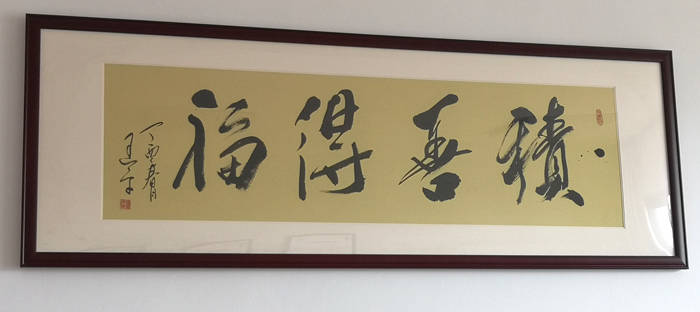 積善得福
丁酉春月